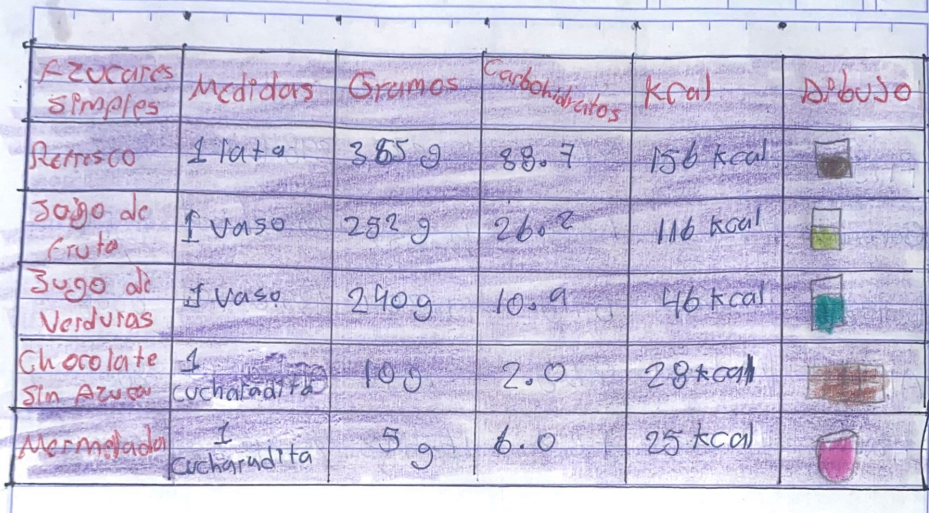 Azucares Simples
Medidas
Gramos
Carbohidratos
Kcal
Dibujo
Refresco
1 lata
385 g
88.7
156 kcal
Jugo de Fruta
1 Vaso
252 g
26.2
116 kcal
Jugo de Verduras
1 Vaso
240g
10.9
46 kcal
Chocolate Sin Azucar
1 cucharadita
10g
2.0
28 kcal
Mermelada
1 cucharadita
5 g
6.0
25 kcal